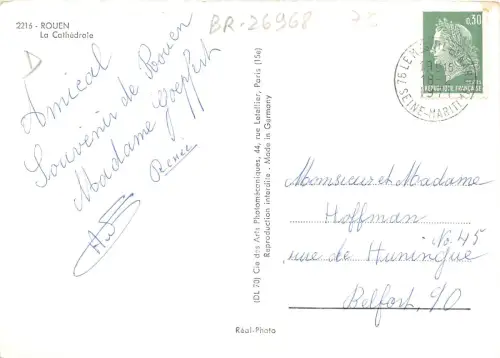 2216 - ROUEN
La Cathédrale
BR-26968
D
Amical
Souvenir de Rouen
Madame
Renée
(DL 70) Cie des Arts Photomécaniques, 44, rue Letellier, Paris (15e)
Reproduction interdite - Made in Germany
Réal-Photo
0,30
REPUBLIQUE FRANÇAISE
76 LE H
SEINE-MARITIME
Monsieur et Madame
Hoffman
No. 45
rue de Huningue
Belfort, 90